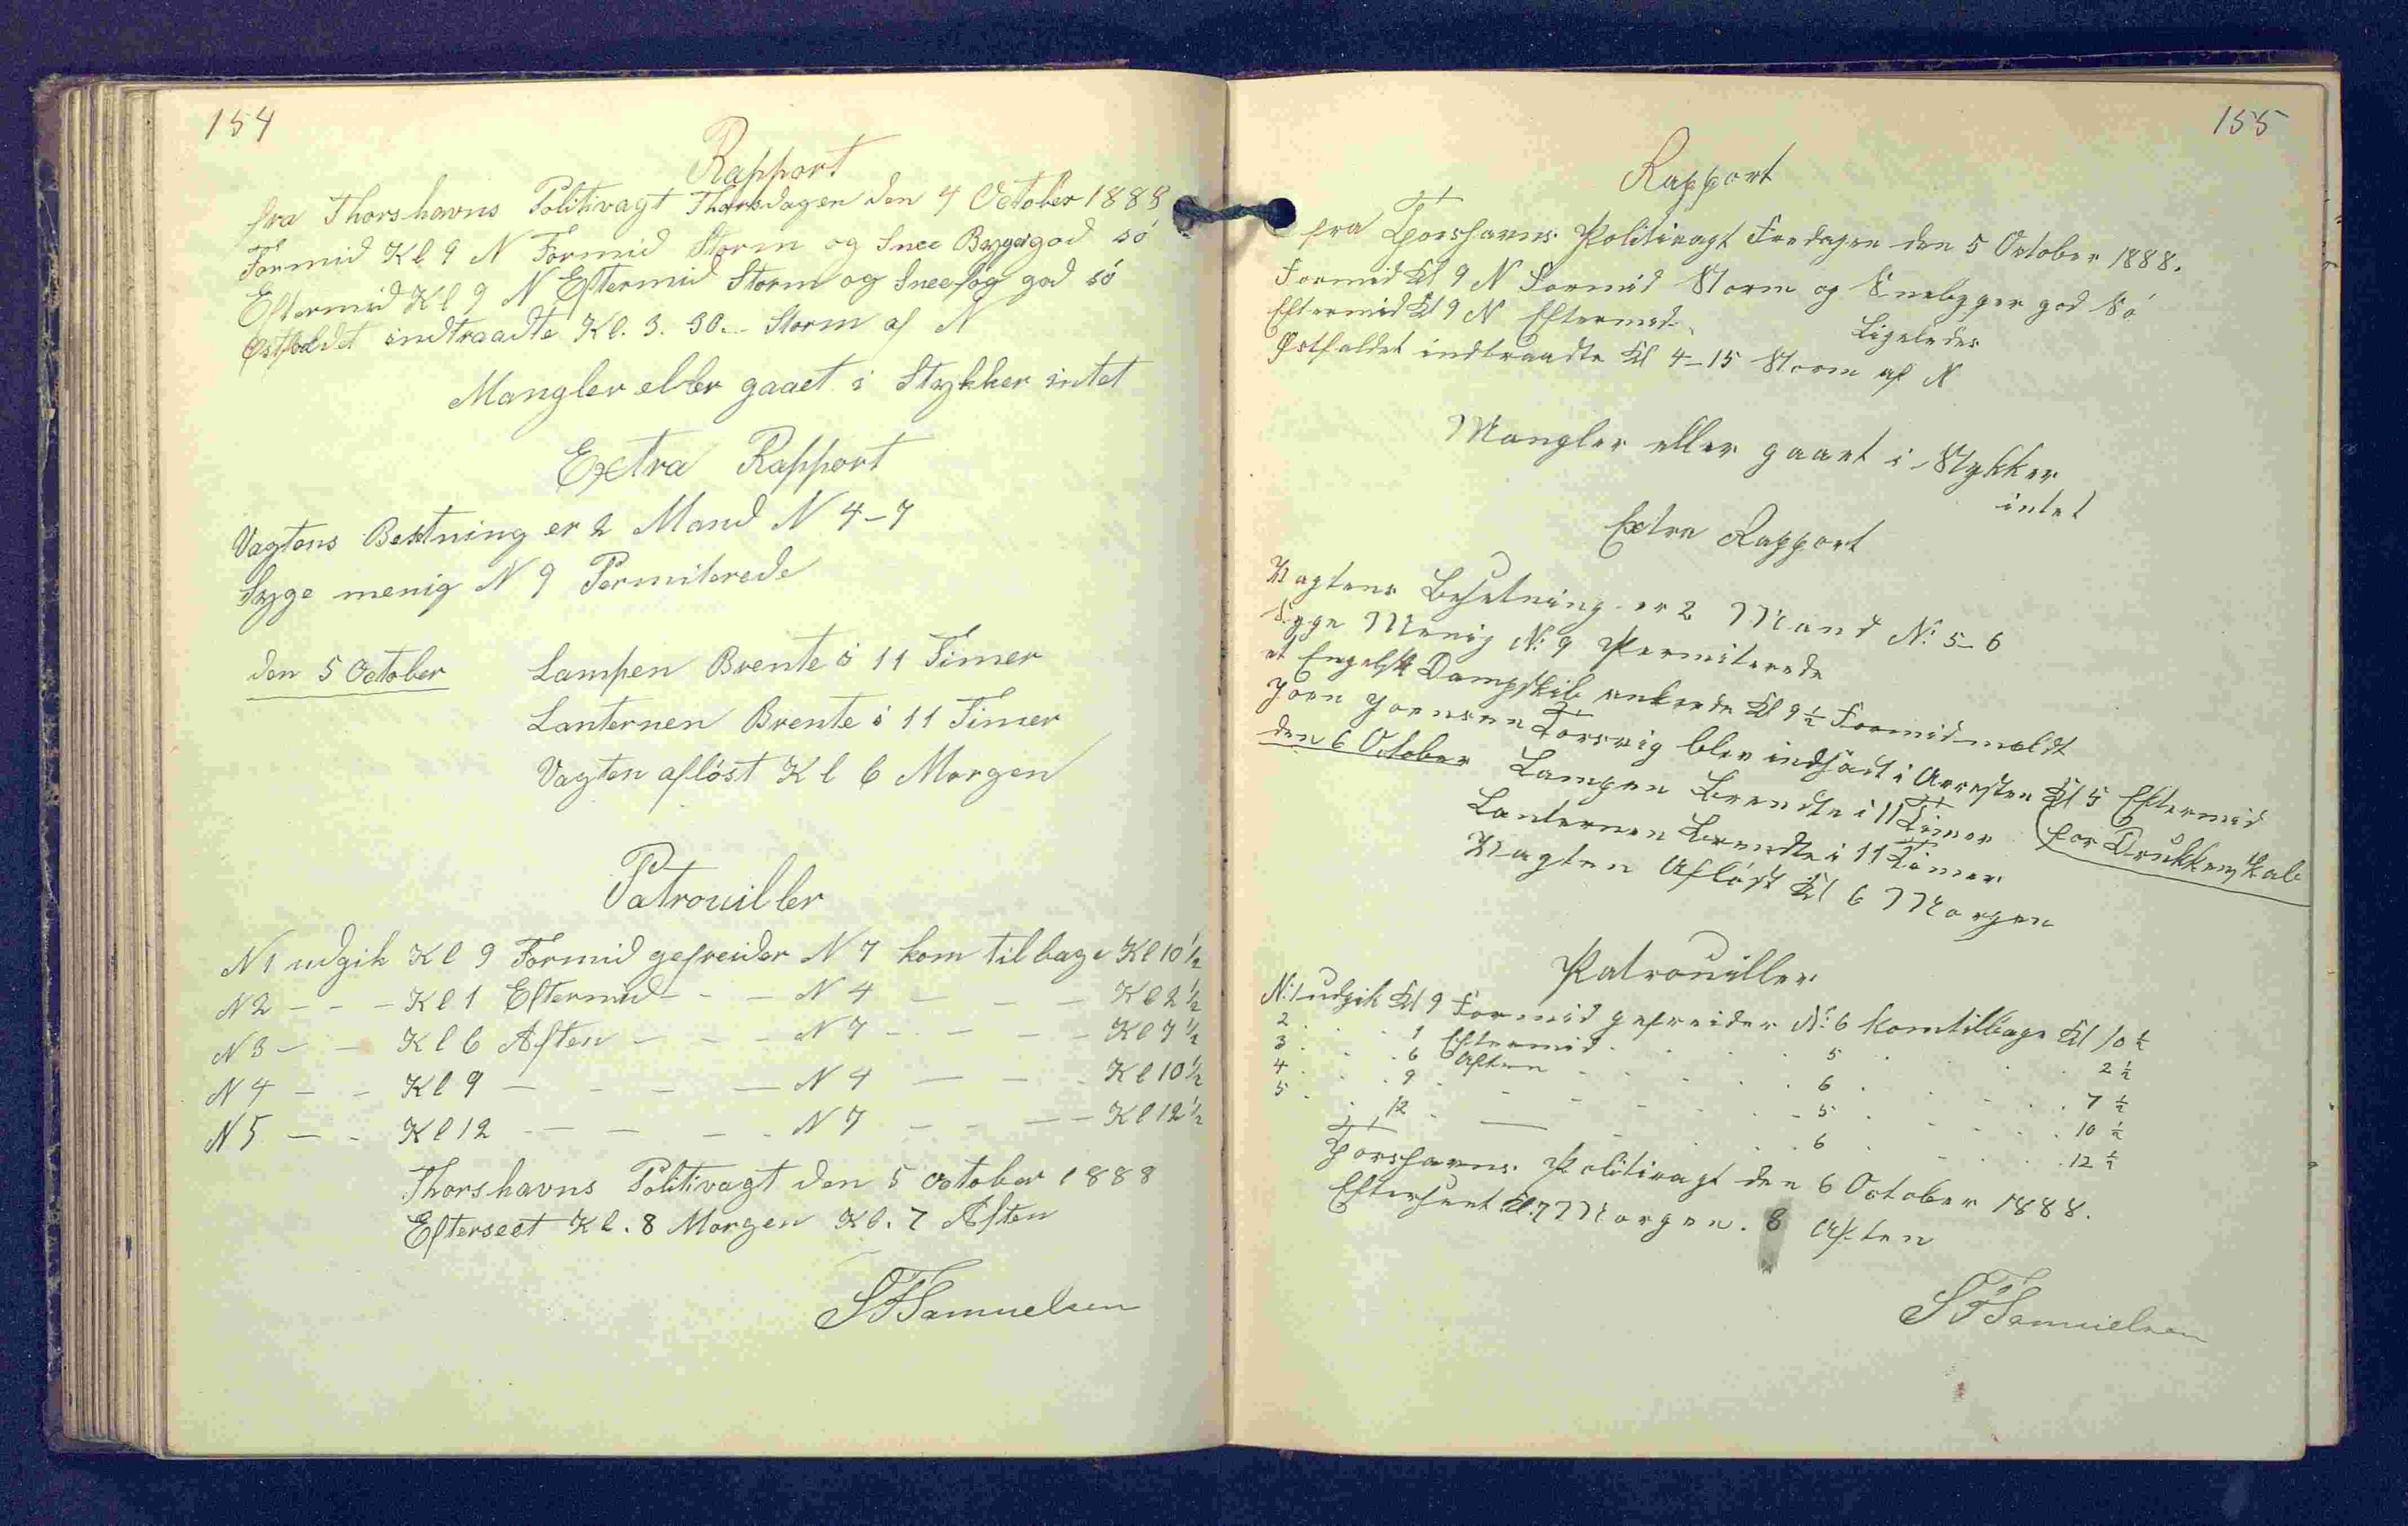 154
Rapport
fra Thorshavns Politivagt Thorsdagen den 4 October 1888
Formid Kl 9 N Formid Storm og Snee Byger god só
Eftermid Kl 9 N Eftermid Storm og Sneefog god só
Østfaldet indtraadte Kl. 3. 30.- Storm af N
Mangler eller gaaet i Stykker intet
Extra Rapport
Vagtens Besetning er 2 Mand N 4-7
Syge menig N 9 Permiterede
den 5 October Lampen Brente i 11 Timer
Lanternen Brente i 11 Timer
Vagten aflóst Kl 6 Morgen
Patrouiller
N 1 udgik Kl 9 Formid gefreider N 7 kom tilbage Kl 10 1/2
N 2 - - - Kl 1 Eftermid - - - N 4 - - - Kl 2 1/2
N 3 - - Kl 6 Aften - - - N 7 - - - - Kl 7 1/2
N 4 - - Kl 9 - - - - N 4 - - - Kl 10 1/2
N 5 - - Kl 12 - - - - N 7 - - - - Kl 12 1/2
Thorshavns Politivagt den 5 October 1888
Efterseet Kl. 8 Morgen Kl. 7 Aften
SFSamuelsen
155
Rapport
fra Thorshavns Politivagt Fredagen den 5 October 1888.
Formid Kl 9 N Formid Storm og Snebyger god Só
Eftermid Kl 9 N Eftermid. Ligeledes
Østfaldet indtraadte Kl 4-15 Storm af N
Mangler eller gaaet i Stykker
intet
Extra Rapport
Vagtens Besetning er 2 Mand No 5-6
Syge Menig No 9 Permiterede
et Engelsk Dampskib ankrede Kl 9 1/2 Formid meldt
Joen Joensen Torsvig blev indsadt i Arresten Kl 5 Eftermid
(for Drukkenskab
den 6 October Lampen Brendte i 11 Timer
Lanternen Brendte i 11 Timer
Vagten Aflóst Kl 6 Morgen
Patrouiller
No 1 udgik Kl 9 Formid gefreider No 6 kom tilbage Kl 10 1/2
2 . . . 1 Eftermid . . . 5 . . . 2 1/2
3 . . . 6 Aften . . . 6 . . . 7 1/2
4 . . . 9 . . . 5 . . . 10 1/2
5 . . . 12 . . . 6 . . . 12 1/2
Thorshavns Politivagt den 6 October 1888.
Efterseet Kl. 7 Morgen. 8 Aften
SFSamuelsen